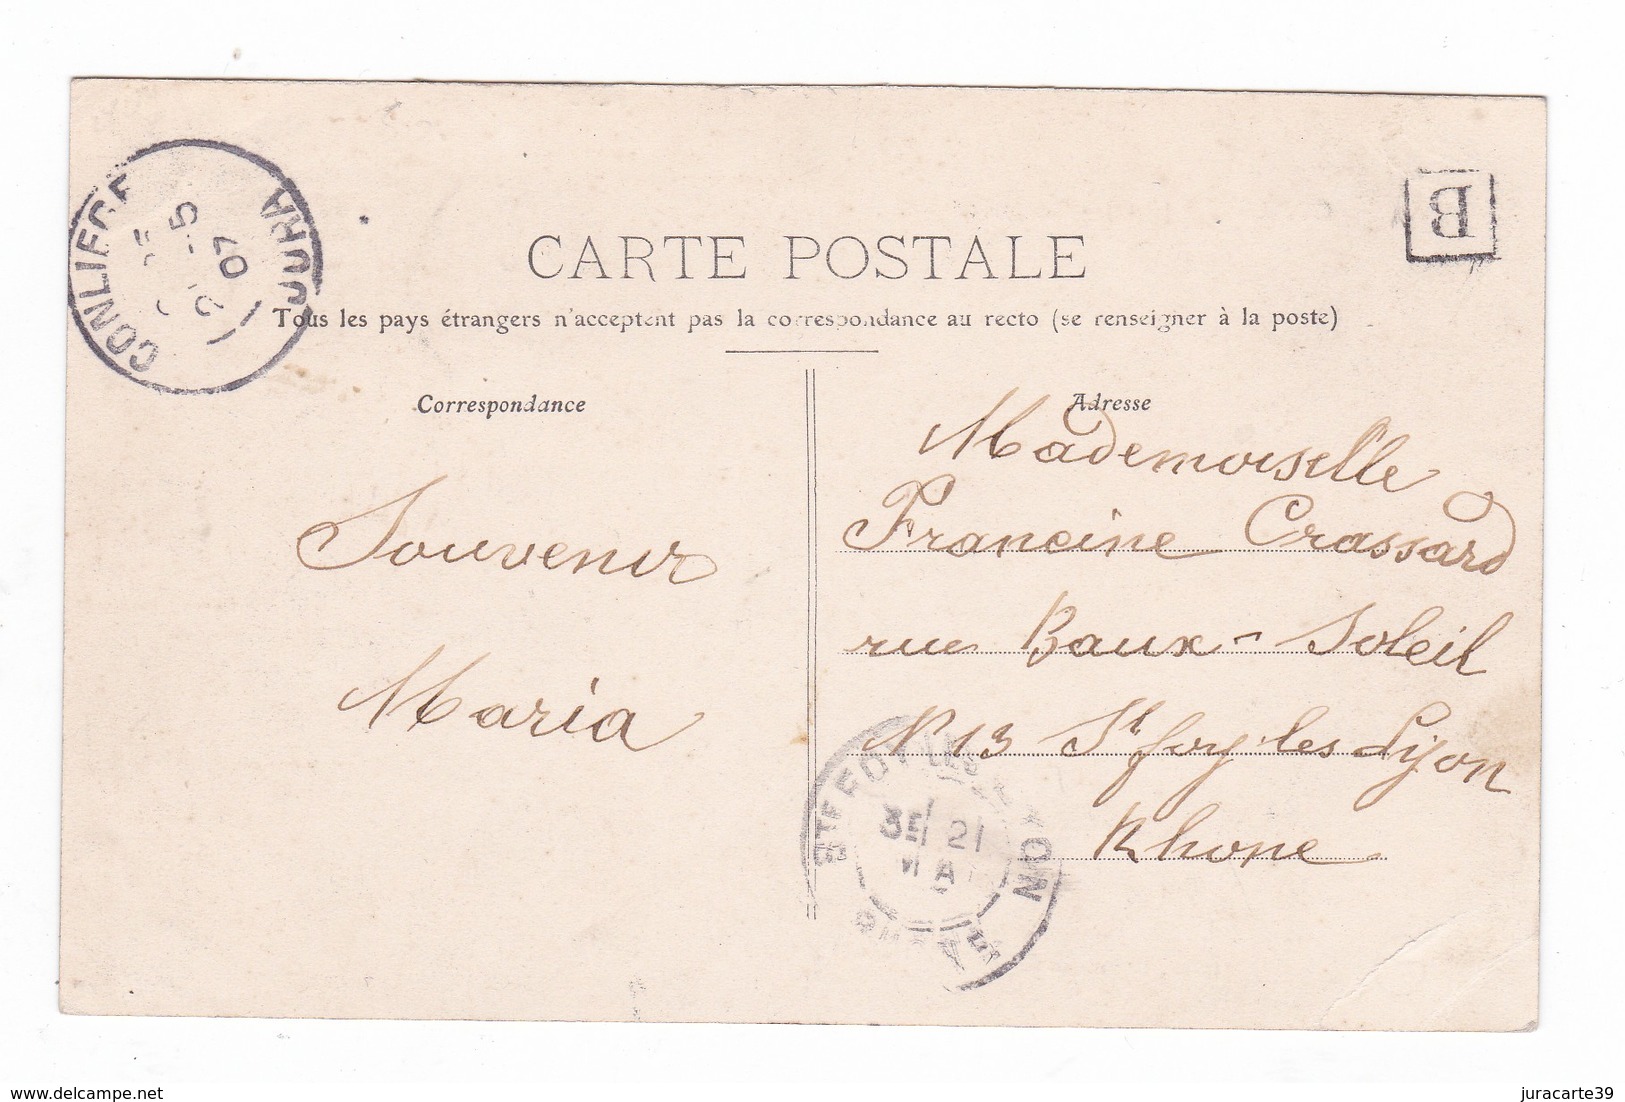 CONLIEGE
JURA
5
07
B
CARTE POSTALE
Tous les pays étrangers n'acceptent pas la correspondance au recto (se renseigner à la poste)
Correspondance
Adresse
Souvenir
Maria
Mademoiselle
Francine Crassard
rue Baux-Soleil
N 13 St foy-les Lyon
Rhone
STE FOY LES LYON
21
delcampe.net
juracarte39